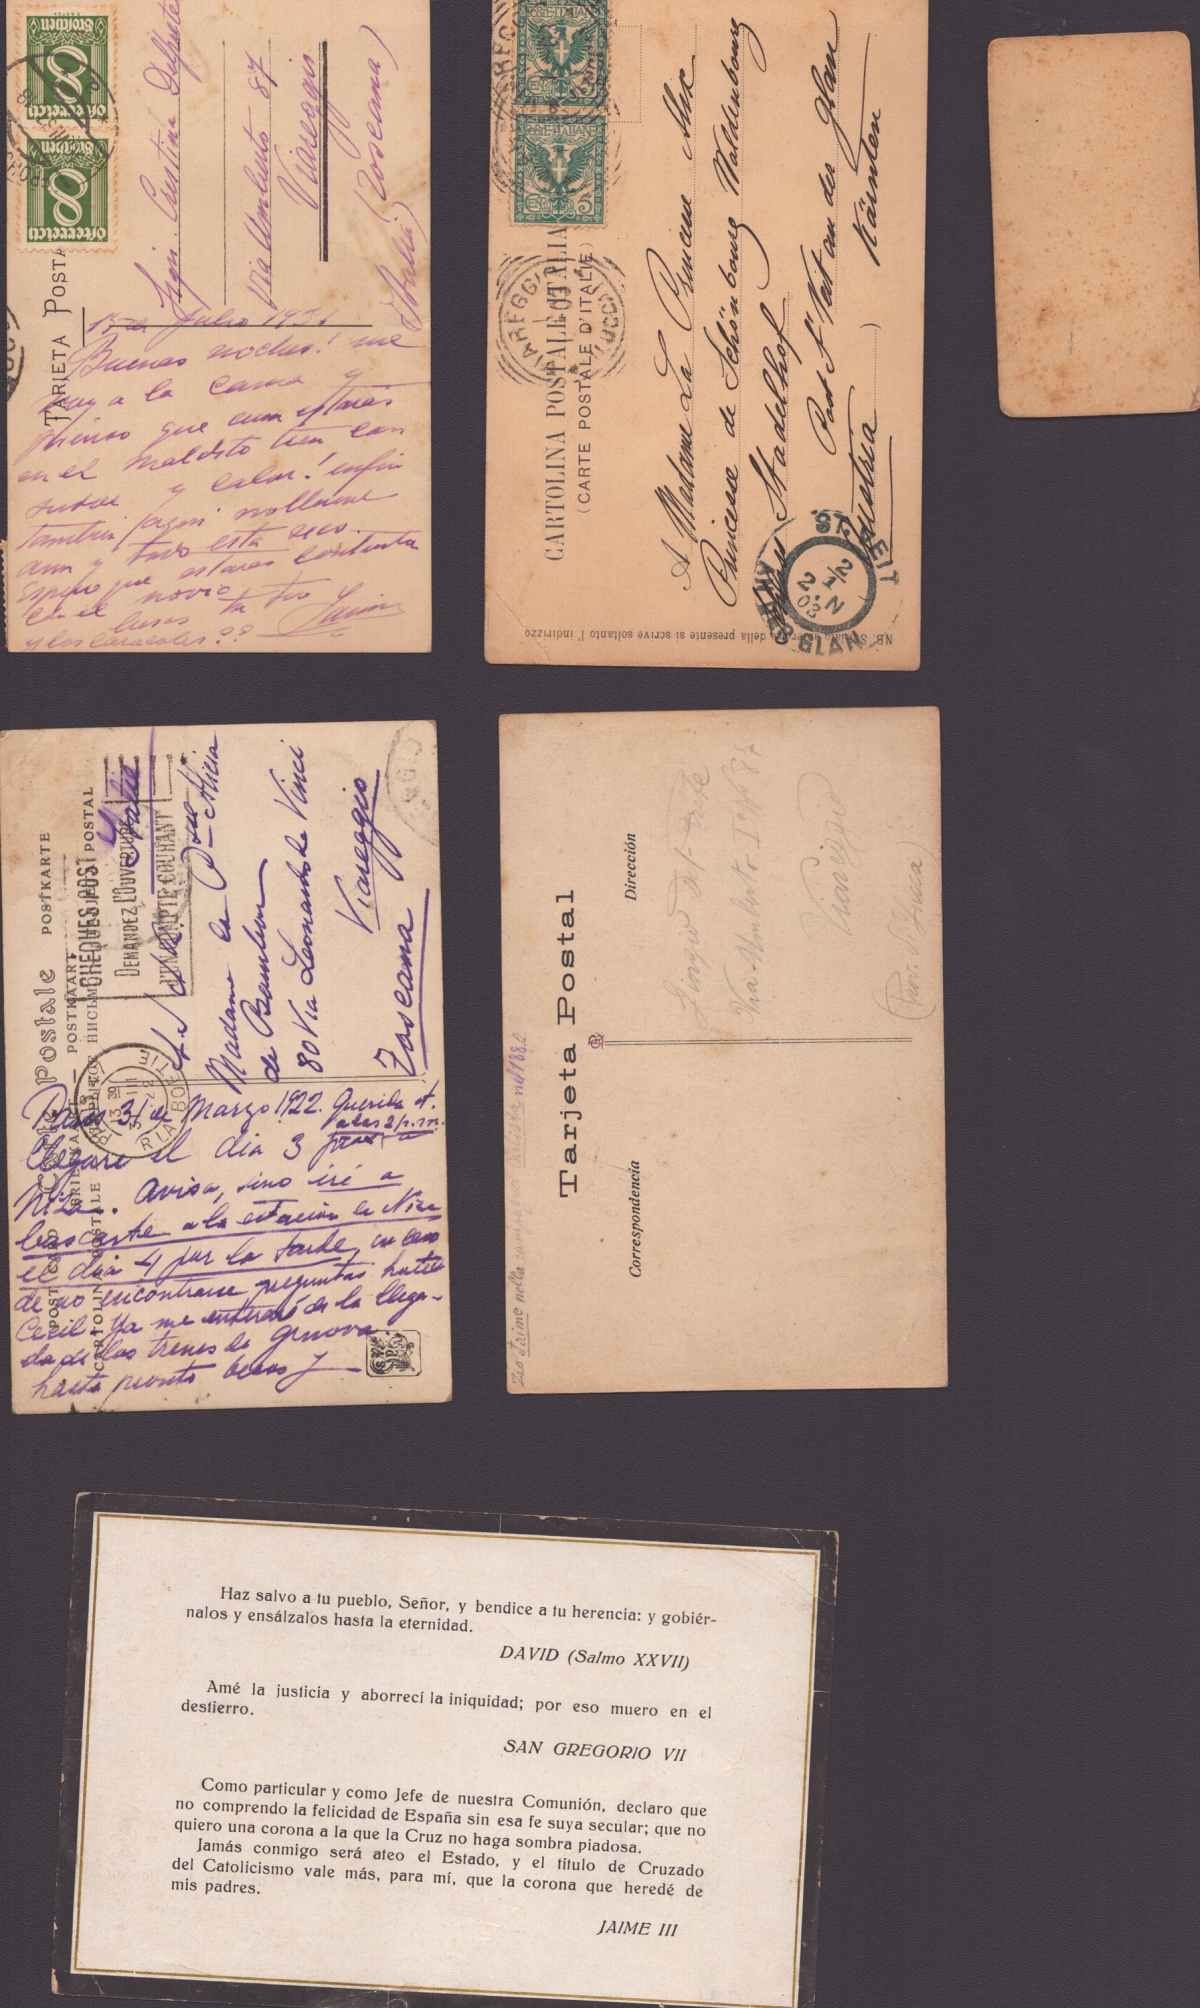 TARJETA POSTA
15 de Julio 1931
Buenas noches! me
voy a la cama y
pienso que aun estaras
en el maldito tren con
sudor y calor! enfin
tambien
aun y todo esta seco.
espero que estaras contenta
en el novio
besos tu tio Jaime
y los caracoles??
Sign. Cristina
Via Umberto 87
Viareggio
(Toscana)
(Italia)
CARTOLINA POSTALE ITALIANA
(CARTE POSTALE D'ITALIE)
VIAREGGIO
LUCCA
A Madame La Princesse Alice
Princesse de Schönbourg Waldenbourg
Stadelhof
Post St Veit an der Glan
Kärnten
Austria
ST. VEIT
GLAN
NB. Sul lato della presente si scrive soltanto l'indirizzo
Postale POSTKARTE
POSTKAART
POST CARD
CHEQUES POSTAUX
DEMANDEZ L'OUVERTURE
D'UN COMPTE COURANT
Paris 31 de Marzo 1922. Querida A.
Llegaré el dia 3 a las 2 p.m. para a
Niza. Avisa, sino iré a
buscarte a la estación de Niza
el dia 4 por la tarde, en caso
de no encontrarse preguntas hotel
Cecil. Ya me enteraré de la llega-
da de los trenes de Genova
hasta pronto besos J
A S.A.R.
Madame la Psse Alicia
de Bourbon
80 Via Leonardo da Vinci
Viareggio
Toscana
Italie
Tarjeta Postal
Correspondencia
Dirección
Tio Jaime nella
Via Umberto I Nº 87
Viareggio
(Prov. di Lucca)
Haz salvo a tu pueblo, Señor, y bendice a tu herencia: y gobiér-
nalos y ensálzalos hasta la eternidad.
DAVID (Salmo XXVII)
Amé la justicia y aborrecí la iniquidad; por eso muero en el
destierro.
SAN GREGORIO VII
Como particular y como Jefe de nuestra Comunión, declaro que
no comprendo la felicidad de España sin esa fe suya secular; que no
quiero una corona a la que la Cruz no haga sombra piadosa.
Jamás conmigo será ateo el Estado, y el título de Cruzado
del Catolicismo vale más, para mí, que la corona que heredé de
mis padres.
JAIME III